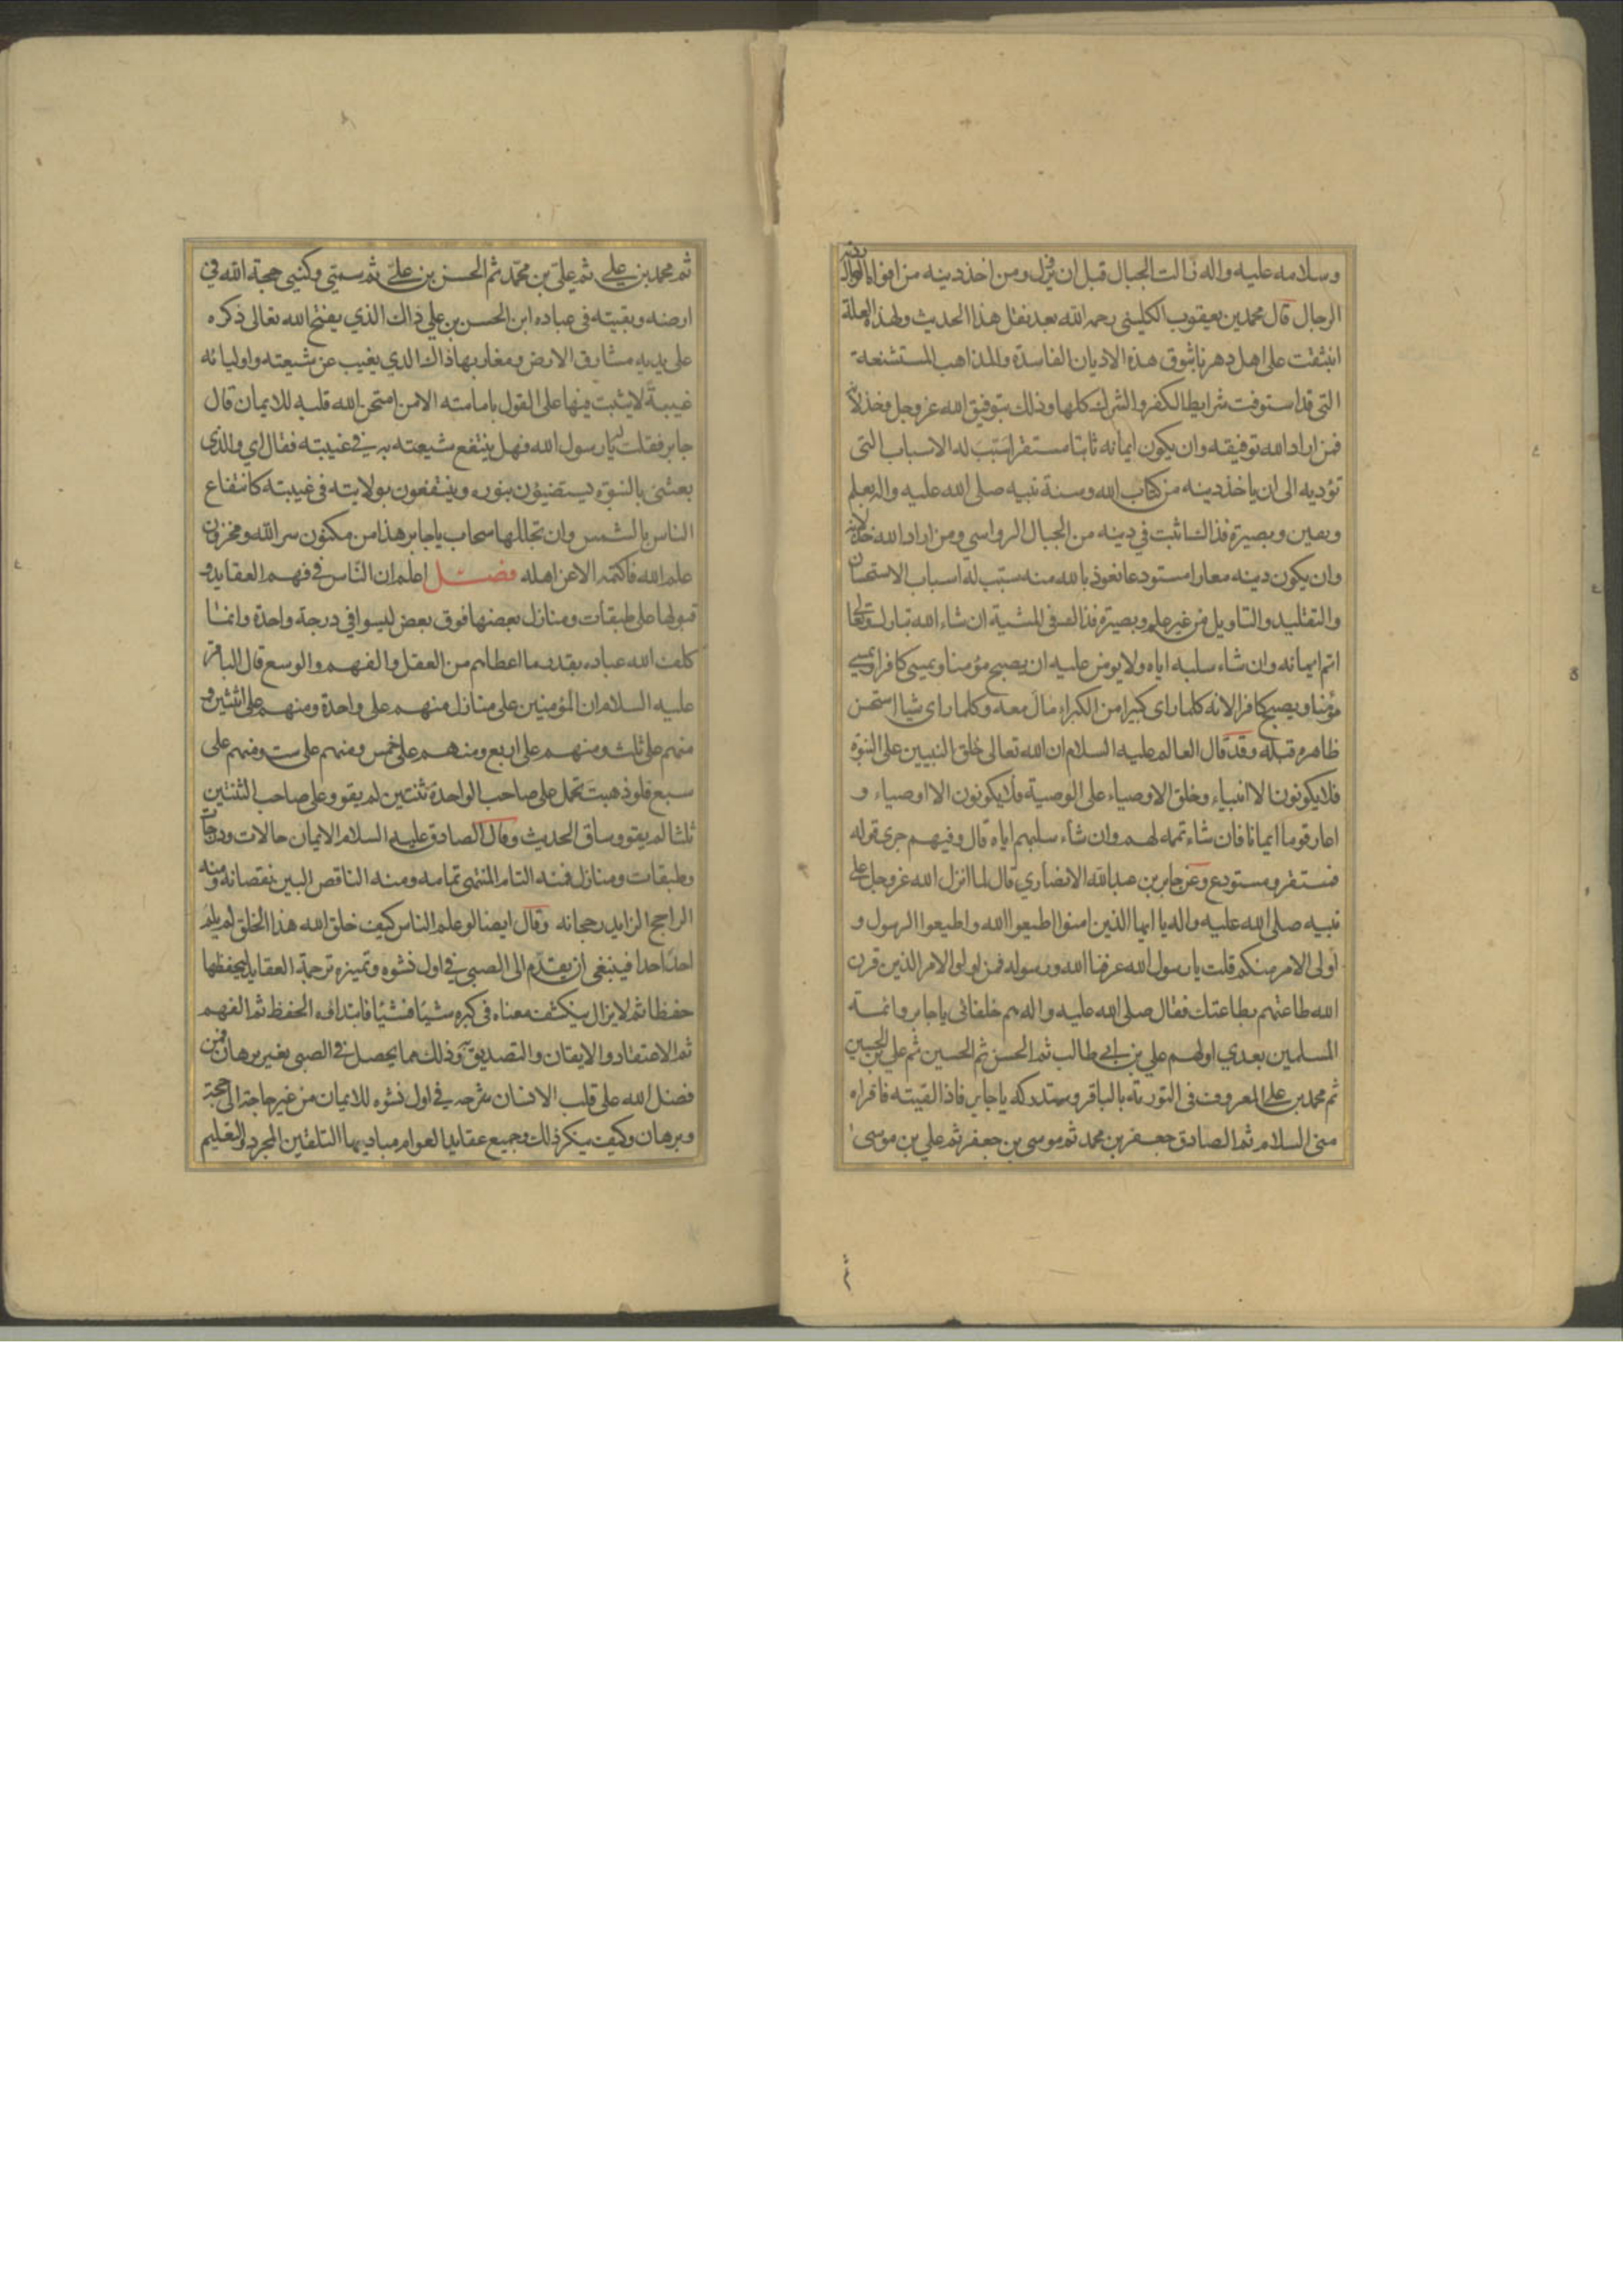 وسلامه عليه واله زالت الجبال قبل ان يزل ومن اخذ دينه من افواه الرجال ردته
الرجال قال محمد بن يعقوب الكليني رحمه الله بعد نقل هذا الحديث ولهذه العلة
انبثقت على اهل دهرنا بثوق هذه الاديان الفاسدة والمذاهب المستشنعة
التي قد استوفت شرايط الكفر والشرك كلها وذلك بتوفيق الله عز وجل وخذلانه
فمن اراد الله توفيقه وان يكون ايمانه ثابتا مستقرا سبب له الاسباب التي
تؤديه الى ان ياخذ دينه من كتاب الله وسنة نبيه صلى الله عليه واله بعلم
ويقين وبصيرة فذاك اثبت في دينه من الجبال الرواسي ومن اراد الله خذلانه
وان يكون دينه معارا مستودعا نعوذ بالله منه سبب له اسباب الاستحسان
والتقليد والتاويل من غير علم وبصيرة فذاك في المشية ان شاء الله تبارك وتعالى
اتم ايمانه وان شاء سلبه اياه ولا يؤمن عليه ان يصبح مؤمنا ويمسي كافرا او يمسي
مؤمنا ويصبح كافرا لانه كلما راى كبيرا من الكبراء مال معه وكلما راى شيا استحسن
ظاهره قبله وقد قال العالم عليه السلام ان الله تعالى خلق النبيين على النبوة
فلا يكونون الا انبياء وخلق الاوصياء على الوصية فلا يكونون الا اوصياء و
اعار قوما ايمانا فان شاء تممه لهم وان شاء سلبهم اياه قال وفيهم جرى قوله
فمستقر ومستودع وعن جابر بن عبد الله الانصاري قال لما انزل الله عز وجل على
نبيه صلى الله عليه واله يا ايها الذين امنوا اطيعوا الله واطيعوا الرسول و
اولى الامر منكم قلت يا رسول الله عرفنا الله ورسوله فمن اولوا الامر الذين قرن
الله طاعتهم بطاعتك فقال صلى الله عليه واله هم خلفائي يا جابر وائمة
المسلمين بعدي اولهم علي بن ابي طالب ثم الحسن ثم الحسين ثم علي بن الحسين
ثم محمد بن علي المعروف في التورية بالباقر وستدركه يا جابر فاذا لقيته فاقراه
مني السلام ثم الصادق جعفر بن محمد ثم موسى بن جعفر ثم علي بن موسى
ثم
ثم محمد بن علي ثم علي بن محمد ثم الحسن بن علي ثم سميي وكنيي حجة الله في
ارضه وبقيته في عباده ابن الحسن بن علي ذاك الذي يفتح الله تعالى ذكره
على يديه مشارق الارض ومغاربها ذاك الذي يغيب عن شيعته واوليائه
غيبةً لا يثبت فيها على القول بامامته الا من امتحن الله قلبه للايمان قال
جابر فقلت يا رسول الله فهل ينتفع شيعته به في غيبته فقال اي والذي
بعثني بالنبوة يستضيؤن بنوره وينتفعون بولايته في غيبته كانتفاع
الناس بالشمس وان تجللها سحاب يا جابر هذا من مكنون سر الله ومخزون
علم الله فاكتمه الا عن اهله فصل اعلم ان الناس في فهم العقايد و
قبولها على طبقات ومنازل بعضها فوق بعض ليسوا في درجة واحدة وانما
كلف الله عباده بقدر ما اعطاهم من العقل والفهم والوسع قال الباقر
عليه السلام ان المؤمنين على منازل منهم على واحدة ومنهم على اثنتين و
منهم على ثلث ومنهم على اربع ومنهم على خمس ومنهم على ست ومنهم على
سبع فلو ذهبت تحمل على صاحب الواحدة ثنتين لم يقو وعلى صاحب الثنتين
ثلثا لم يقو وساق الحديث وقال الصادق عليه السلام الايمان حالات ودرجات
وطبقات ومنازل فمنه التام المنتهى تمامه ومنه الناقص البين نقصانه ومنه
الراجح الزايد رجحانه وقال ايضا لو علم الناس كيف خلق الله هذا الخلق لم يلم
احد احدا فينبغي ان يقدم الى الصبي في اول نشوه وتميزه ترجمة العقايد ليحفظها
حفظا ثم لا يزال ينكشف معناه في كبره شيئا فشيئا فابتداؤه الحفظ ثم الفهم
ثم الاعتقاد والايقان والتصديق به وذلك مما يحصل في الصبي بغير برهان فمن
فضل الله على قلب الانسان شرحه في اول نشوه للايمان من غير حاجة الى حجة
وبرهان وكيف ينكر ذلك وجميع عقايد العوام مباديها التلقين المجرد والتعليم